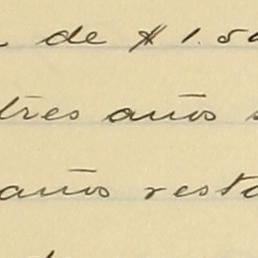 de $ 1.50
tres años
años resta